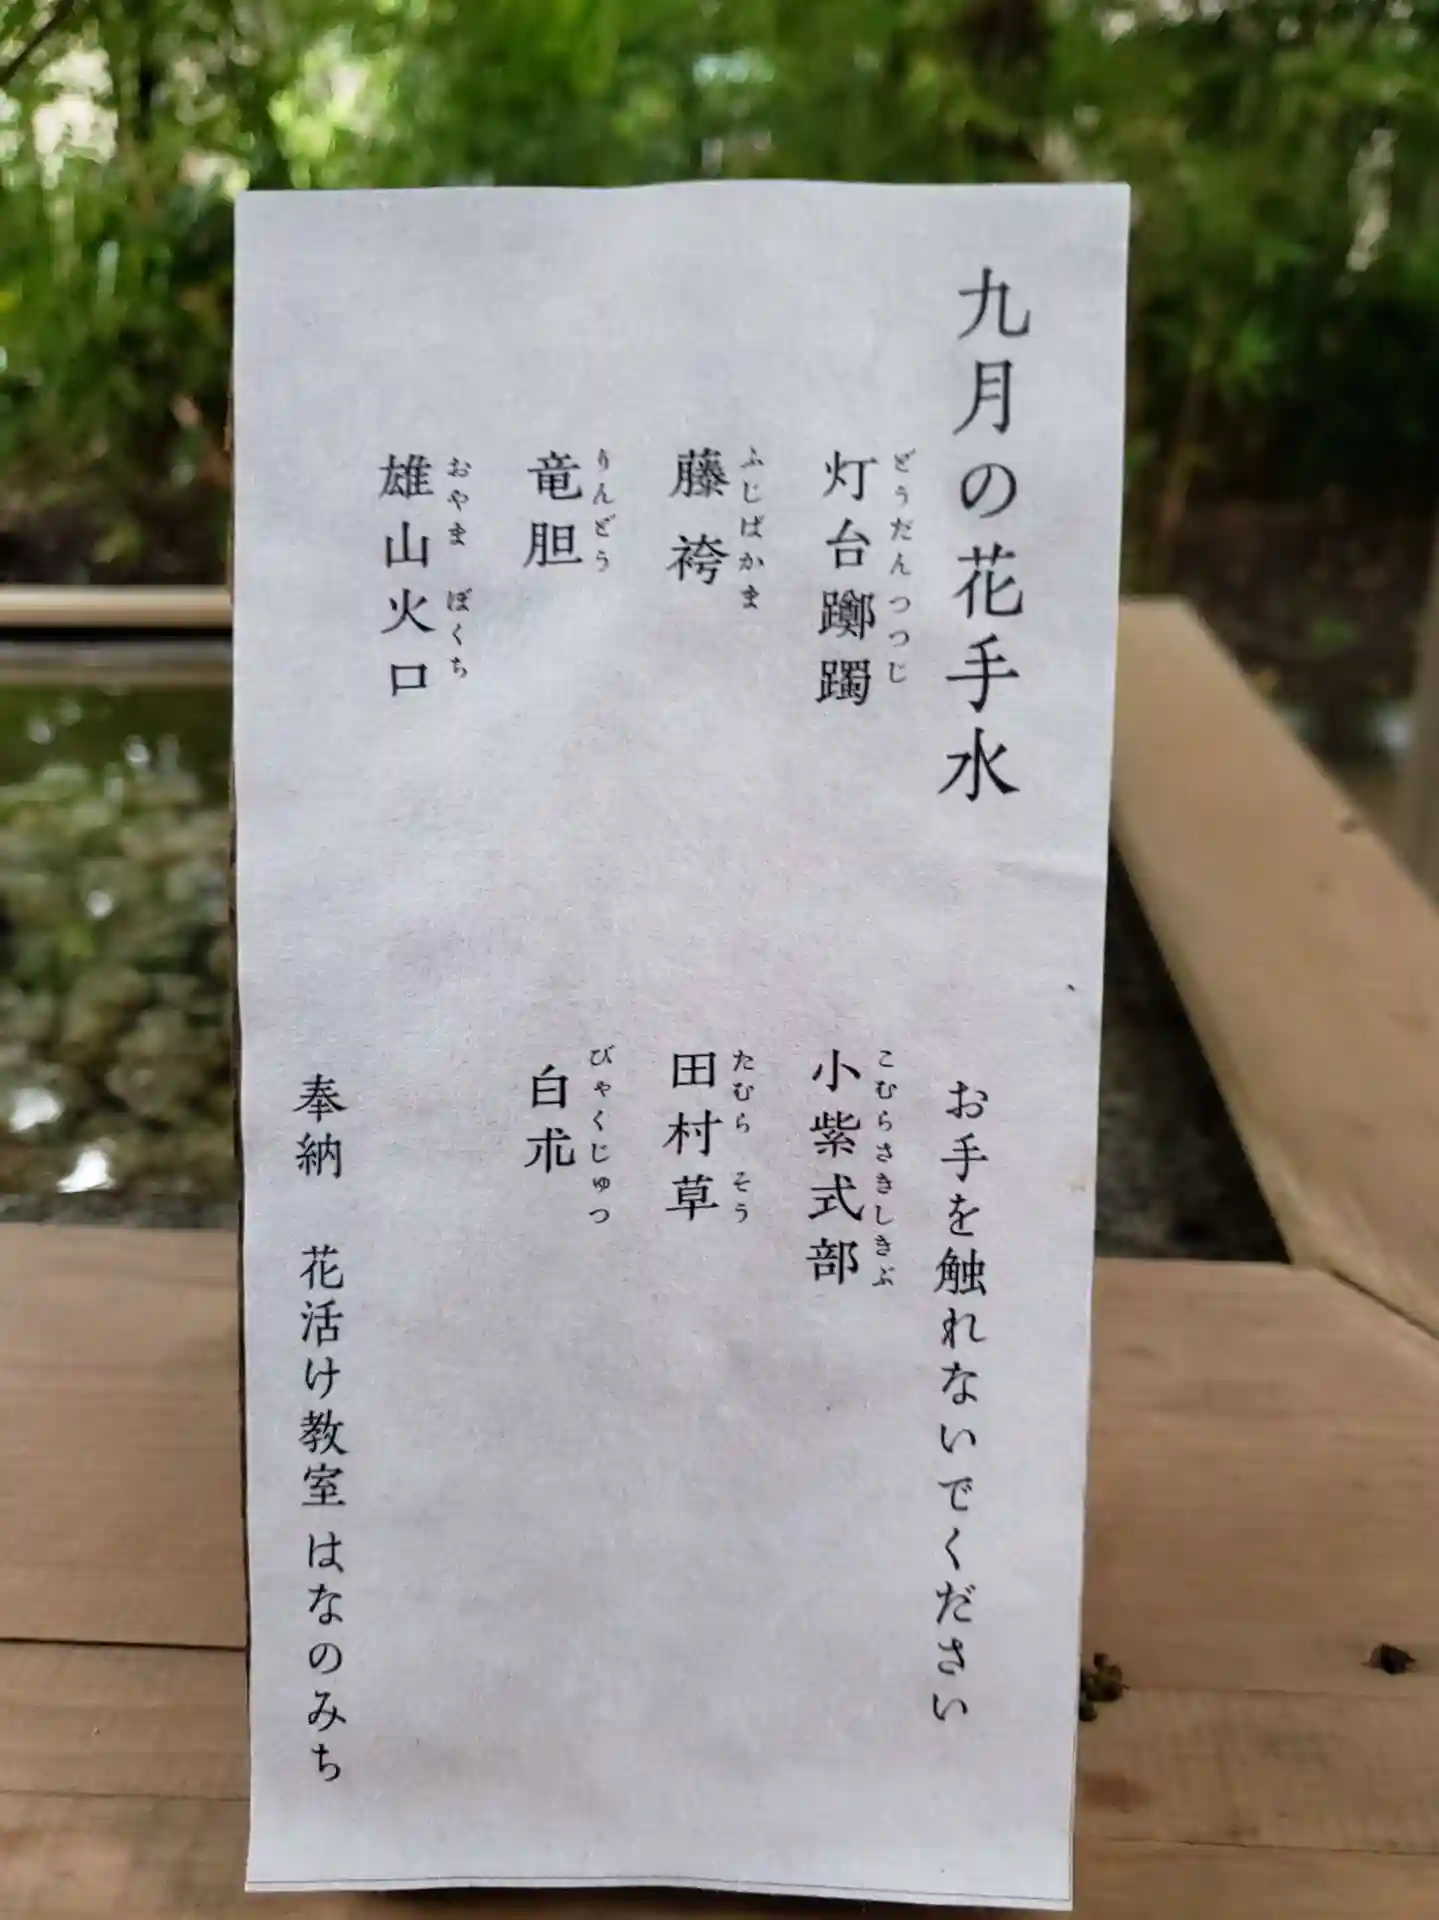 九月の花手水
お手を触れないでください
どうだんつつじ
灯台躑躅
こむらさきしきぶ
小紫式部
ふじばかま
藤袴
たむら そう
田村草
りんどう
竜胆
びゃくじゅつ
白朮
おやま ぼくち
雄山火口
奉納 花活け教室 はなのみち